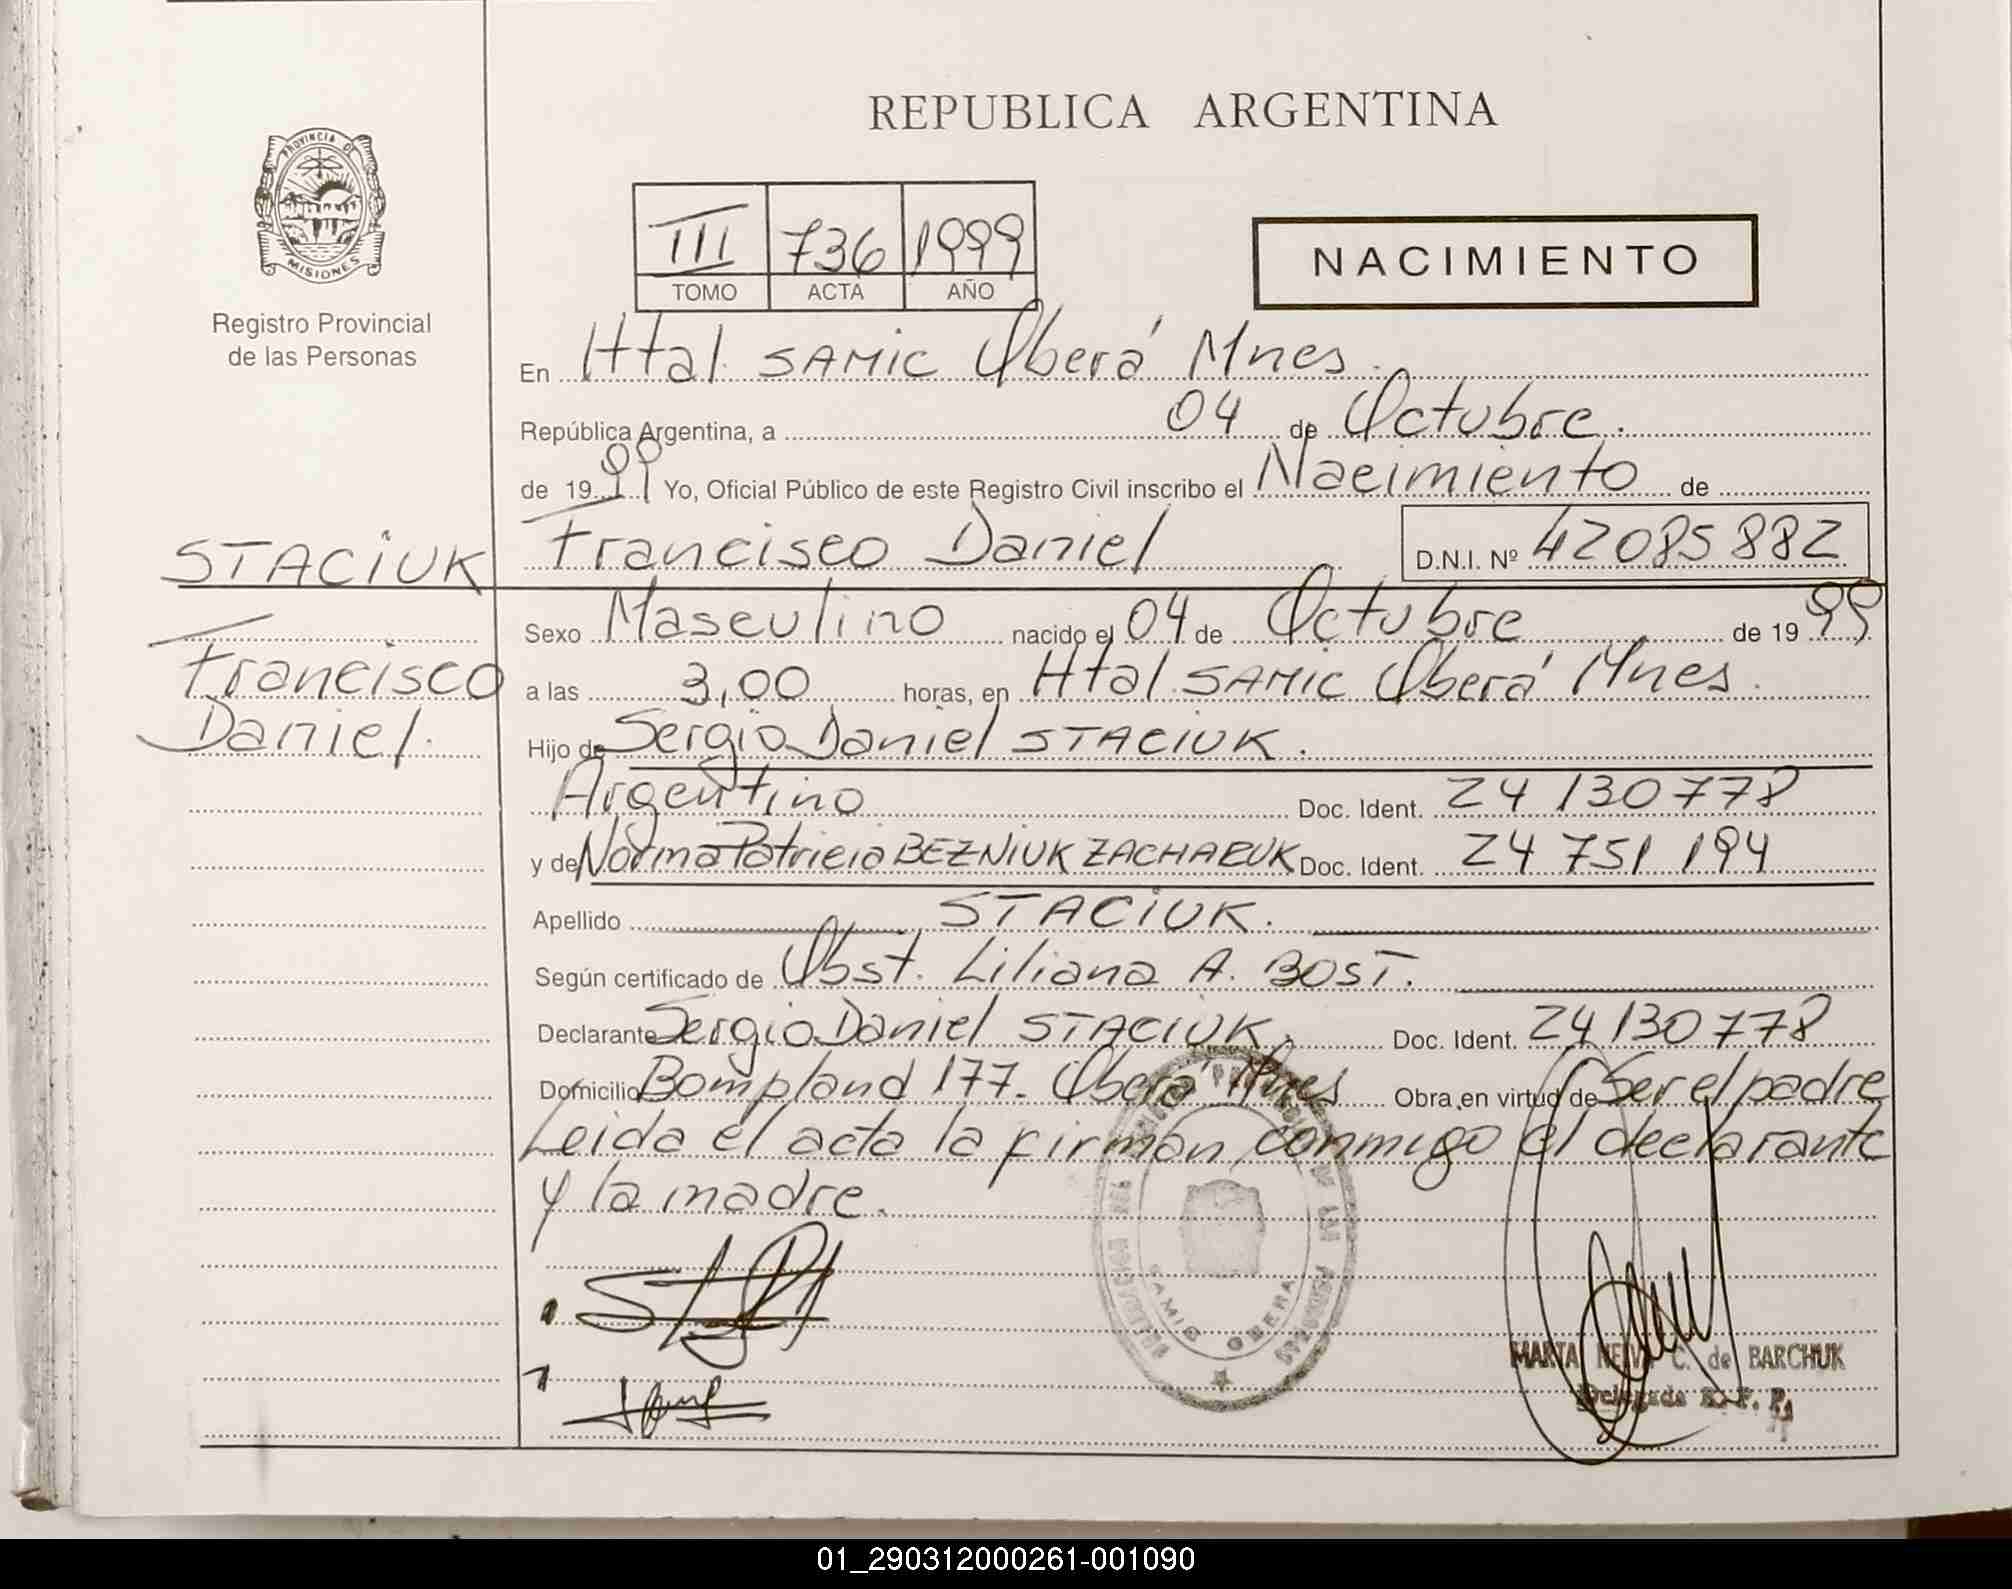 REPUBLICA ARGENTINA
PROVINCIA DE
MISIONES
Registro Provincial
de las Personas
III 736 1999
TOMO ACTA AÑO
NACIMIENTO
En Htal. SAMIC Oberá Mnes.
República Argentina, a 04 de Octubre.
de 1999 Yo, Oficial Público de este Registro Civil inscribo el Nacimiento de
STACIUK
Francisco Daniel D.N.I. Nº 42085882
Francisco
Daniel.
Sexo Masculino nacido el 04 de Octubre de 1999
a las 3,00 horas, en Htal. SAMIC Oberá Mnes.
Hijo de Sergio Daniel STACIUK.
Argentino Doc. Ident. 24 130778
y de Norma Patricia BEZNIUK ZACHARUK Doc. Ident. 24 751 194
Apellido STACIUK.
Según certificado de Obst. Liliana A. BOST.
Declarante Sergio Daniel STACIUK. Doc. Ident. 24130778
Domicilio Bompland 177. Oberá Mnes Obra en virtud de Ser el padre
Leida el acta la firman conmigo el declarante
y la madre.
SAMIC OBERA
DE LAS PERSONAS
MARTA NELVA C. de BARCHUK
Delegada R. P. P.
01_290312000261-001090